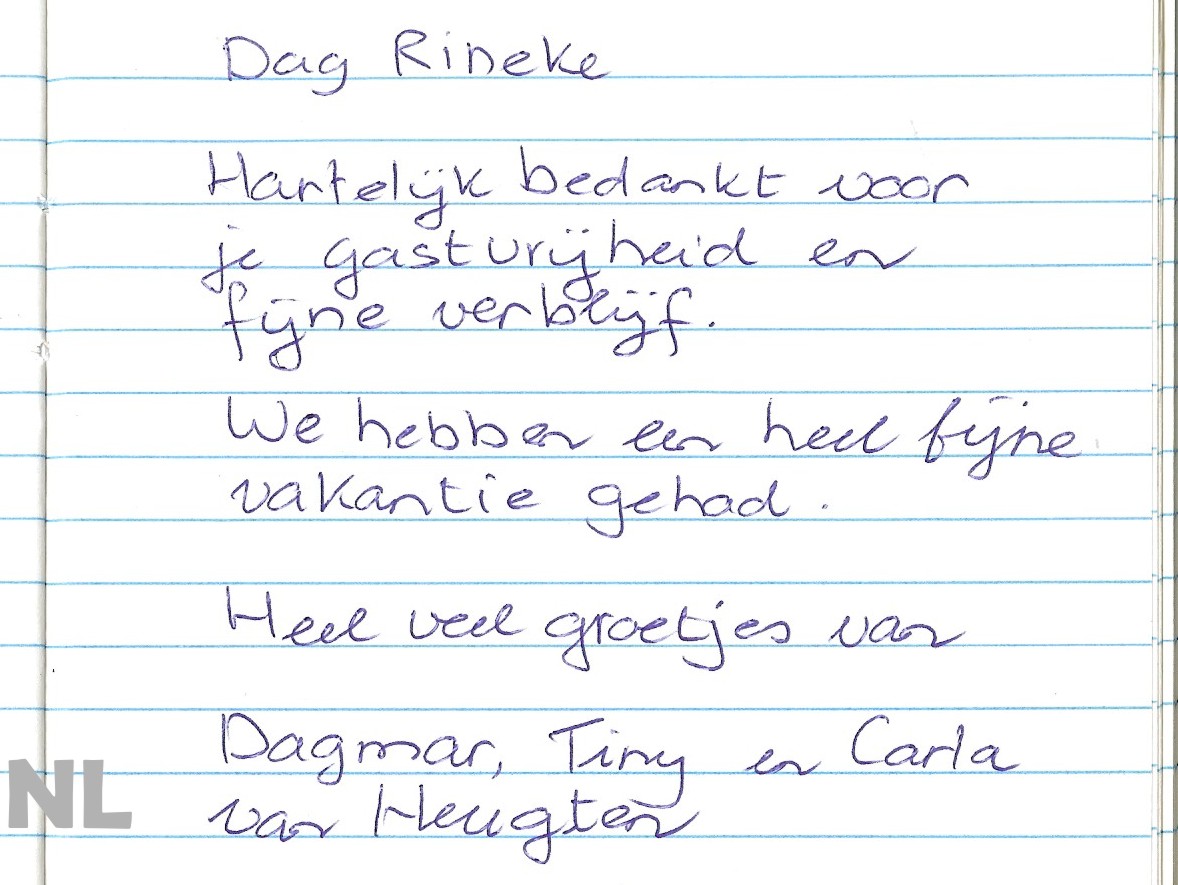 Dag Rineke
Hartelijk bedankt voor
je gastvrijheid en
fijne verblijf.
We hebben een heel fijne
vakantie gehad.
Heel veel groetjes van
Dagmar, Tiny en Carla
van Heugten
NL